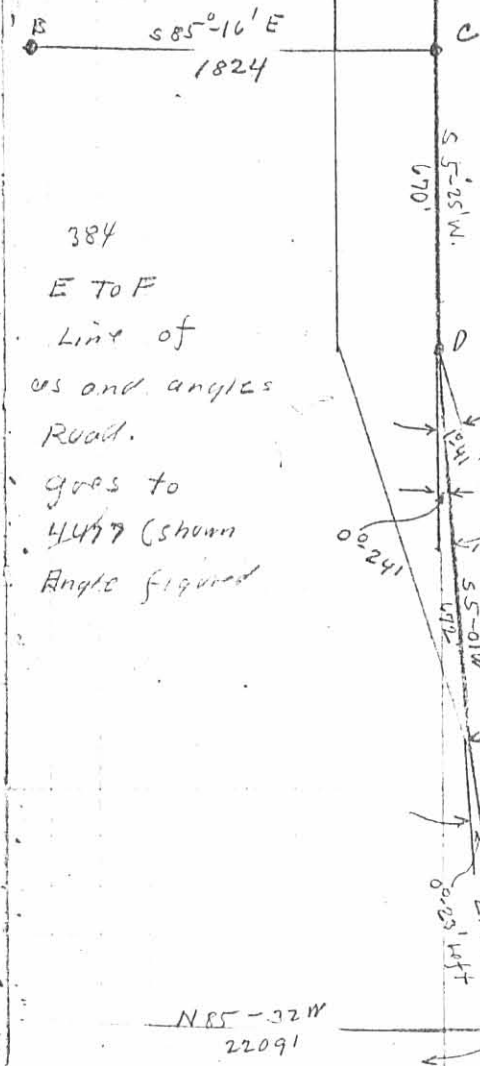 B
S 85°-16' E
C
1824
S 5°-25' W.
670'
384
E TO F
Line of
us and angles
Road.
goes to
4477 (shown
Angle figured
D
1°-41
0°-24'
S 5-01W
472
0°-23' Left
N 85-32W
22091